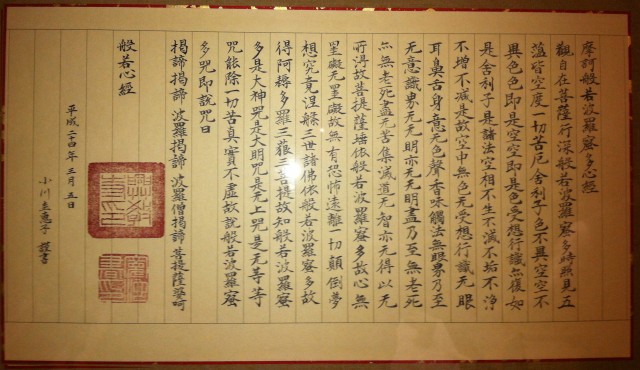 摩訶般若波羅蜜多心経
觀自在菩薩行深般若波羅蜜多時照見五
蘊皆空度一切苦厄舎利子色不異空空不
異色色即是空空即是色受想行識亦復如
是舎利子是諸法空相不生不滅不垢不浄
不增不減是故空中無色无受想行識无眼
耳鼻舌身意无色聲香味觸法無眼界乃至
无意識界无无明亦无无明盡乃至無老死
亦無老死盡无苦集滅道无智亦无得以无
所得故菩提薩埵依般若波羅蜜多故心無
罣礙无罣礙故無有恐怖遠離一切顛倒夢
想究竟涅槃三世諸佛依般若波羅蜜多故
得阿耨多羅三藐三菩提故知般若波羅蜜
多是大神咒是大明咒是无上咒是无等等
咒能除一切苦真實不虚故説般若波羅蜜
多咒即説咒曰
揭諦揭諦 波羅揭諦 波羅僧揭諦 菩提薩婆呵
般若心經
平成二十四年三月五日